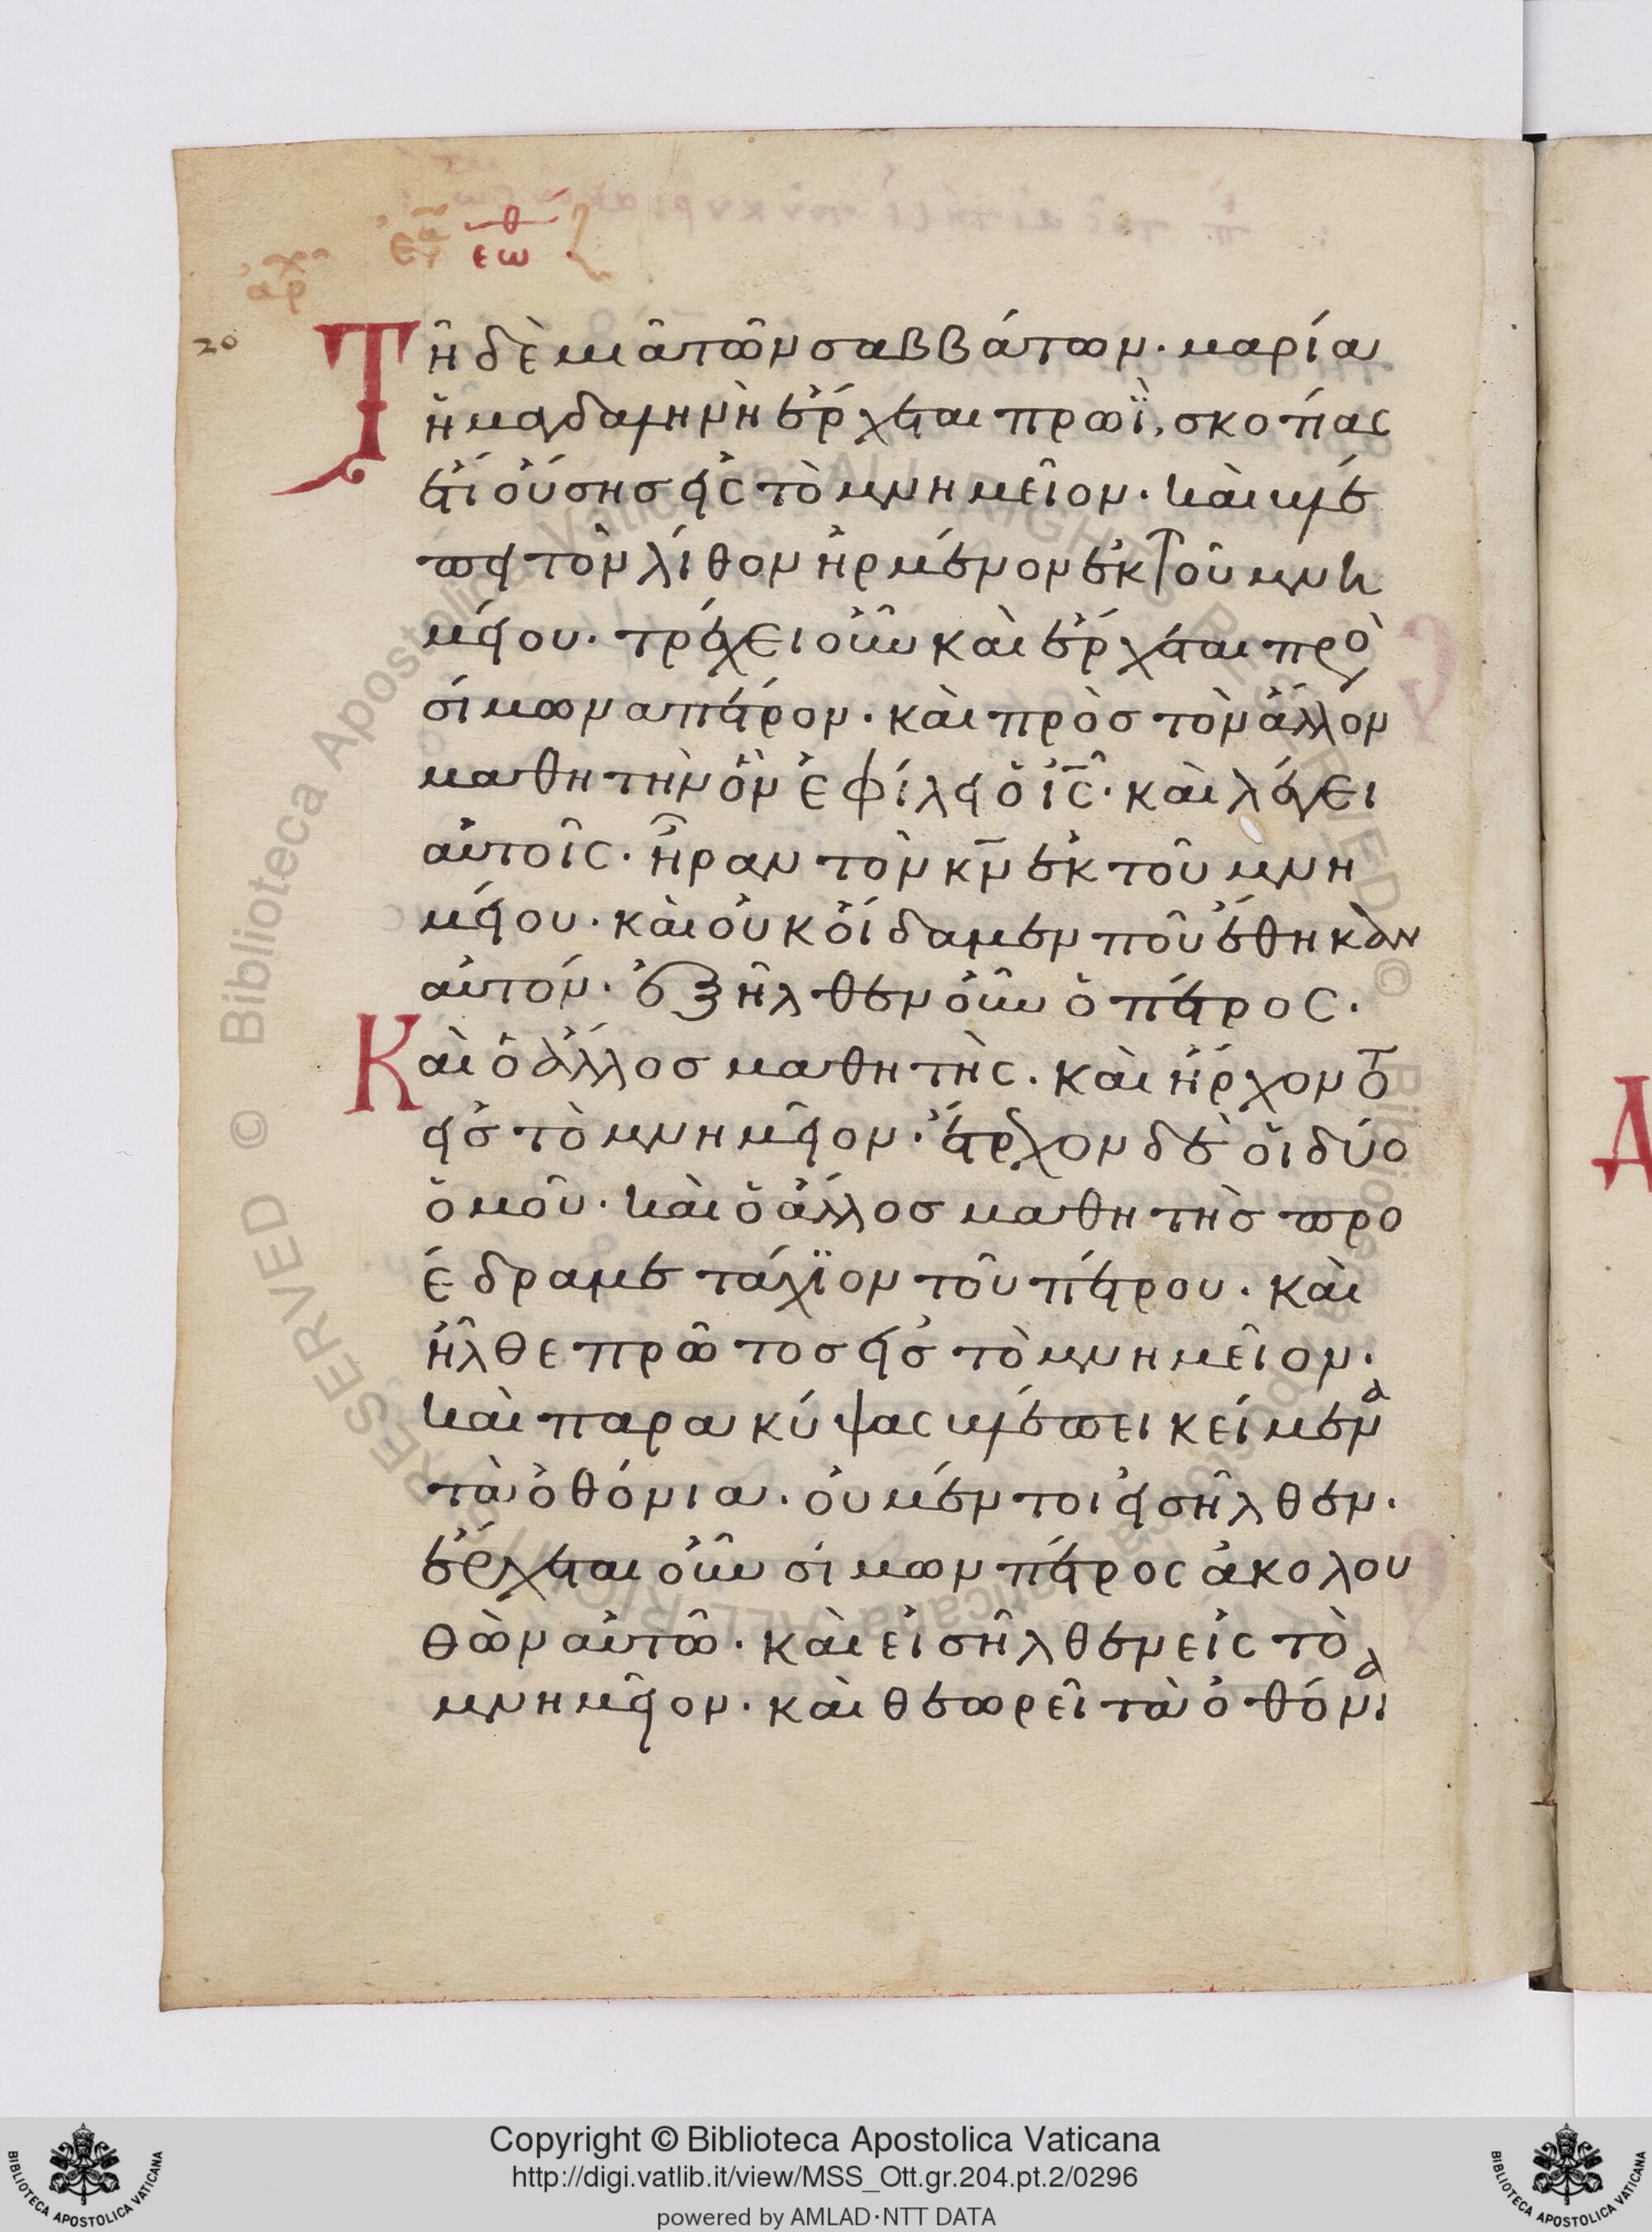 εὐα θ
εω
ἀρχ
20
Τῆ δὲ μιᾶ τῶν σαββάτων· μαρία
ἡ μαγδαληνὴ ἔρχεται πρωῒ, σκοτίας
ἔτι οὔσης εἰς τὸ μνημεῖον· καὶ βλέ
πει τὸν λίθον ἠρμένον ἐκ τοῦ μνη
μείου· τρέχει οὖν καὶ ἔρχεται πρὸ
σίμωνα πέτρον· καὶ πρὸς τὸν ἄλλον
μαθητὴν ὃν ἐφίλει ὁ ις· καὶ λέγει
αὐτοῖς· ἦραν τὸν κν ἐκ τοῦ μνη
μείου· καὶ οὐκ οἴδαμεν ποῦ ἔθηκαν
αὐτόν· ἐξῆλθεν οὖν ὁ πέτρος·
Καὶ ὁ ἄλλος μαθητὴς· καὶ ἤρχοντο
εἰς τὸ μνημεῖον· ἔτρεχον δὲ οἱ δύο
ὁμοῦ· καὶ ὁ ἄλλος μαθητὴς προ
έδραμε τάχϊον τοῦ πέτρου· καὶ
ἦλθε πρῶτος εἰς τὸ μνημεῖον·
καὶ παρακύψας βλέπει κείμενα
τὰ ὀθόνια· οὐ μέντοι εἰσῆλθεν·
ἔρχεται οὖν σίμων πέτρος ἀκολου
θῶν αὐτῶ· καὶ εἰσῆλθεν εἰς τὸ
μνημεῖον· καὶ θεωρεῖ τὰ ὀθόνια
Copyright © Biblioteca Apostolica Vaticana
http://digi.vatlib.it/view/MSS_Ott.gr.204.pt.2/0296
powered by AMLAD·NTT DATA